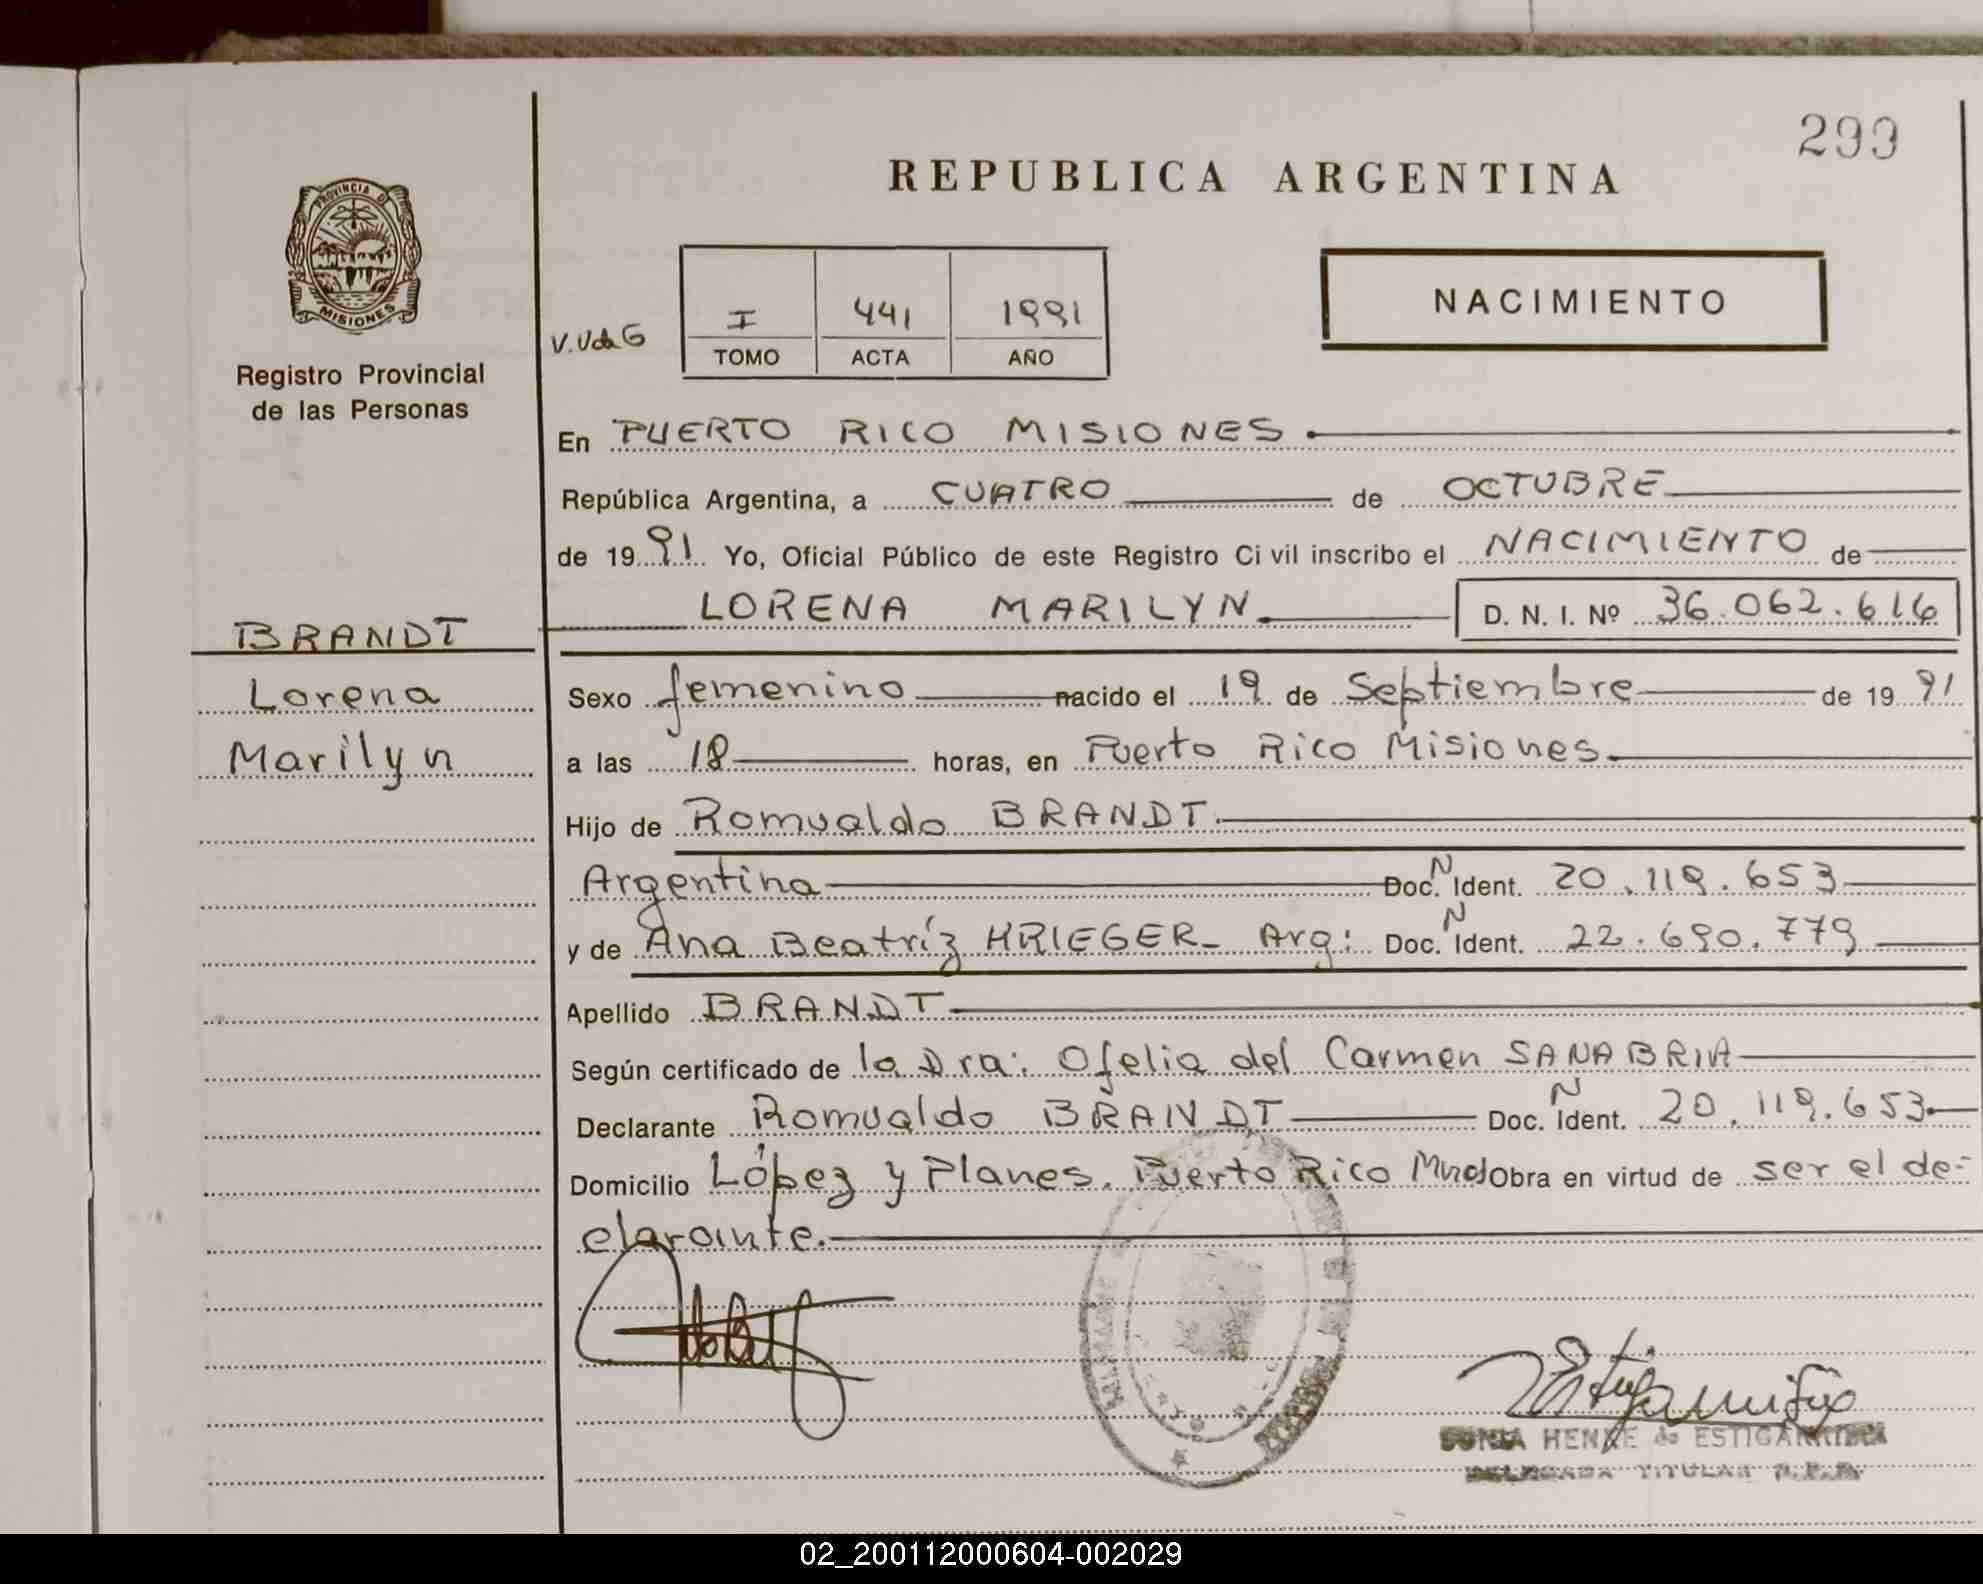 299
REPUBLICA ARGENTINA
PROVINCIA DE
MISIONES
Registro Provincial
de las Personas
V.UdaG
I 441 1991
TOMO ACTA AÑO
NACIMIENTO
En PUERTO RICO MISIONES
República Argentina, a CUATRO de OCTUBRE
de 1991 Yo, Oficial Público de este Registro Civil inscribo el NACIMIENTO de
LORENA MARILYN D. N. I. Nº 36.062.616
BRANDT
Lorena
Marilyn
Sexo femenino nacido el 19 de Septiembre de 1991
a las 18 horas, en Puerto Rico Misiones.
Hijo de Romualdo BRANDT.
Argentina Doc. N Ident. 20.119.653
y de Ana Beatríz KRIEGER- Arg: Doc. N Ident. 22.690.779
Apellido BRANDT
Según certificado de la Dra: Ofelia del Carmen SANABRIA
Declarante Romualdo BRANDT Doc. N Ident. 20.119.653.
Domicilio López y Planes. Puerto Rico Mnes Obra en virtud de ser el de-
clarante.
SONIA HENKE de ESTIGARRIBIA
DELEGADA TITULAR R.P.P.
02_200112000604-002029